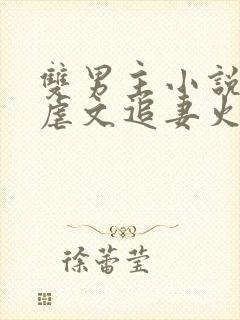 雙男主小說
虐文追妻火
徐蕾莹